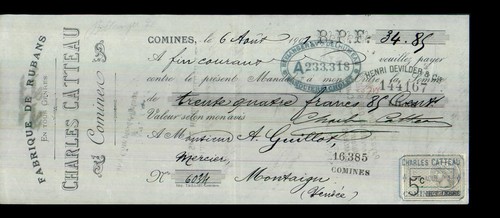 FABRIQUE DE RUBANS
EN TOUS GENRES
CHARLES CATTEAU
Comines
COMINES, le 6 Août 190 B.P.F. 34.85
A fin courant veuillez payer
A 233,318
contre le présent Mandat à mon ordre la somme
HENRI DEVILDER & Cie
144167
de trente quatre francs 85 Cent
Valeur selon mon avis
Charles Catteau
A Monsieur A. Guillot,
Mercier,
16.385
COMINES
N° 6034 Montaigu
(Vendée)
CHARLES CATTEAU
5c
COMINES